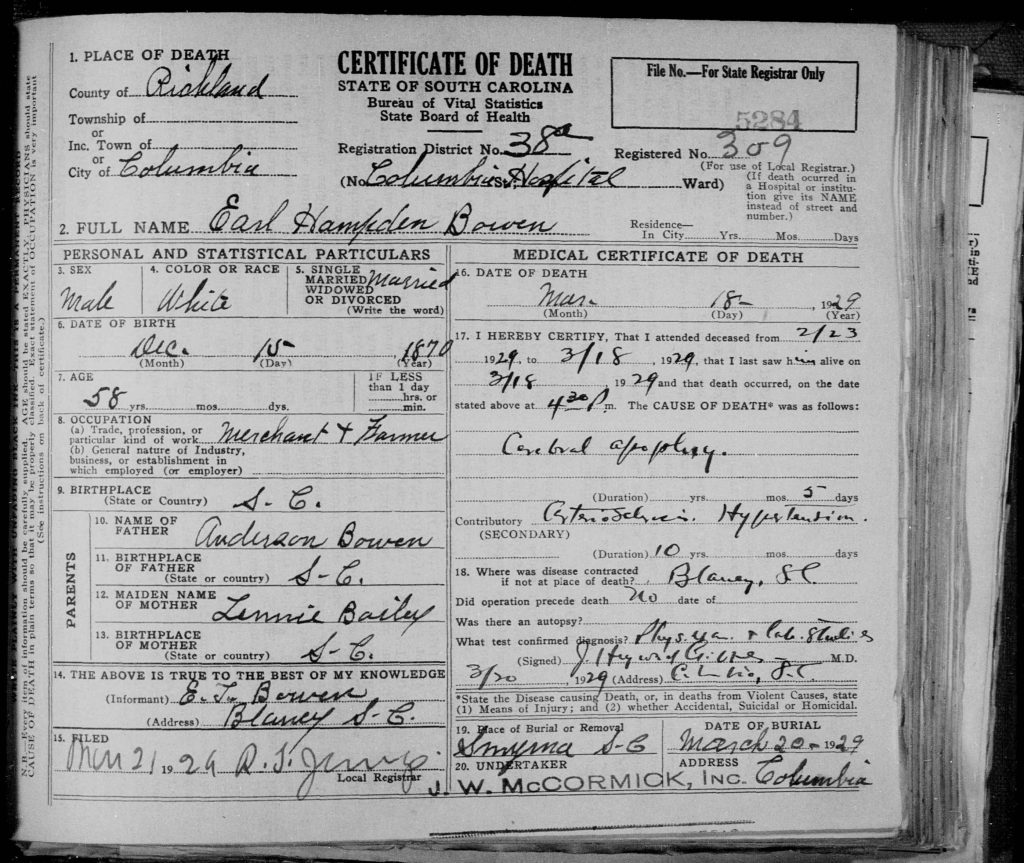 1. PLACE OF DEATH
County of Richland
Township of
or
Inc. Town of
or
City of Columbia
CERTIFICATE OF DEATH
STATE OF SOUTH CAROLINA
Bureau of Vital Statistics
State Board of Health
Registration District No. 38a
(No. Columbia Hospital St. Ward)
File No.—For State Registrar Only
5284
Registered No. 309
(For use of Local Registrar.)
(If death occurred in
a Hospital or institu-
tion give its NAME
instead of street and
number.)
2. FULL NAME Earl Hampden Bowen
Residence—
In City Yrs. Mos. Days
PERSONAL AND STATISTICAL PARTICULARS
3. SEX
Male
4. COLOR OR RACE
White
5. SINGLE
MARRIED Married
WIDOWED
OR DIVORCED
(Write the word)
6. DATE OF BIRTH
Dec. 15 1870
(Month) (Day) (Year)
7. AGE
58 yrs. mos. dys.
IF LESS
than 1 day
hrs. or
min.
8. OCCUPATION
(a) Trade, profession, or
particular kind of work Merchant + Farmer
(b) General nature of Industry,
business, or establishment in
which employed (or employer)
9. BIRTHPLACE
(State or Country) S-C.
PARENTS
10. NAME OF
FATHER Anderson Bowen
11. BIRTHPLACE
OF FATHER
(State or country) S-C.
12. MAIDEN NAME
OF MOTHER Lennie Bailey
13. BIRTHPLACE
OF MOTHER
(State or country) S-C.
14. THE ABOVE IS TRUE TO THE BEST OF MY KNOWLEDGE
(Informant) E. T. Bowen
(Address) Blaney S-C.
15. FILED
Mar 21 1929
Local Registrar
MEDICAL CERTIFICATE OF DEATH
16. DATE OF DEATH
Mar. 18- 1929
(Month) (Day) (Year)
17. I HEREBY CERTIFY, That I attended deceased from 2/23
1929, to 3/18, 1929, that I last saw him alive on
3/18, 1929 and that death occurred, on the date
stated above at 4 30 P m. The CAUSE OF DEATH* was as follows:
Cerebral apoplexy.
(Duration) yrs. mos. 5 days
Contributory Arteriosclerosis. Hypertension.
(SECONDARY)
(Duration) 10 yrs. mos. days
18. Where was disease contracted
if not at place of death? Blaney, S.C.
Did operation precede death No date of
Was there an autopsy?
What test confirmed diagnosis? Phys. exa. + lab. studies
(Signed) J. Heyward Gibbes M.D.
3/20, 1929 (Address) Columbia, S.C.
*State the Disease causing Death, or, in deaths from Violent Causes, state
(1) Means of Injury; and (2) whether Accidental, Suicidal or Homicidal.
19. Place of Burial or Removal
Smyrna S-C
DATE OF BURIAL
March 20- 1929
20. UNDERTAKER
J. W. McCORMICK, INC.
ADDRESS
Columbia
N. B.—Every item of information should be carefully supplied. AGE should be stated EXACTLY. PHYSICIANS should state
CAUSE OF DEATH in plain terms so that it may be properly classified. Exact statement of OCCUPATION is very important
(See instructions on back of certificate.)